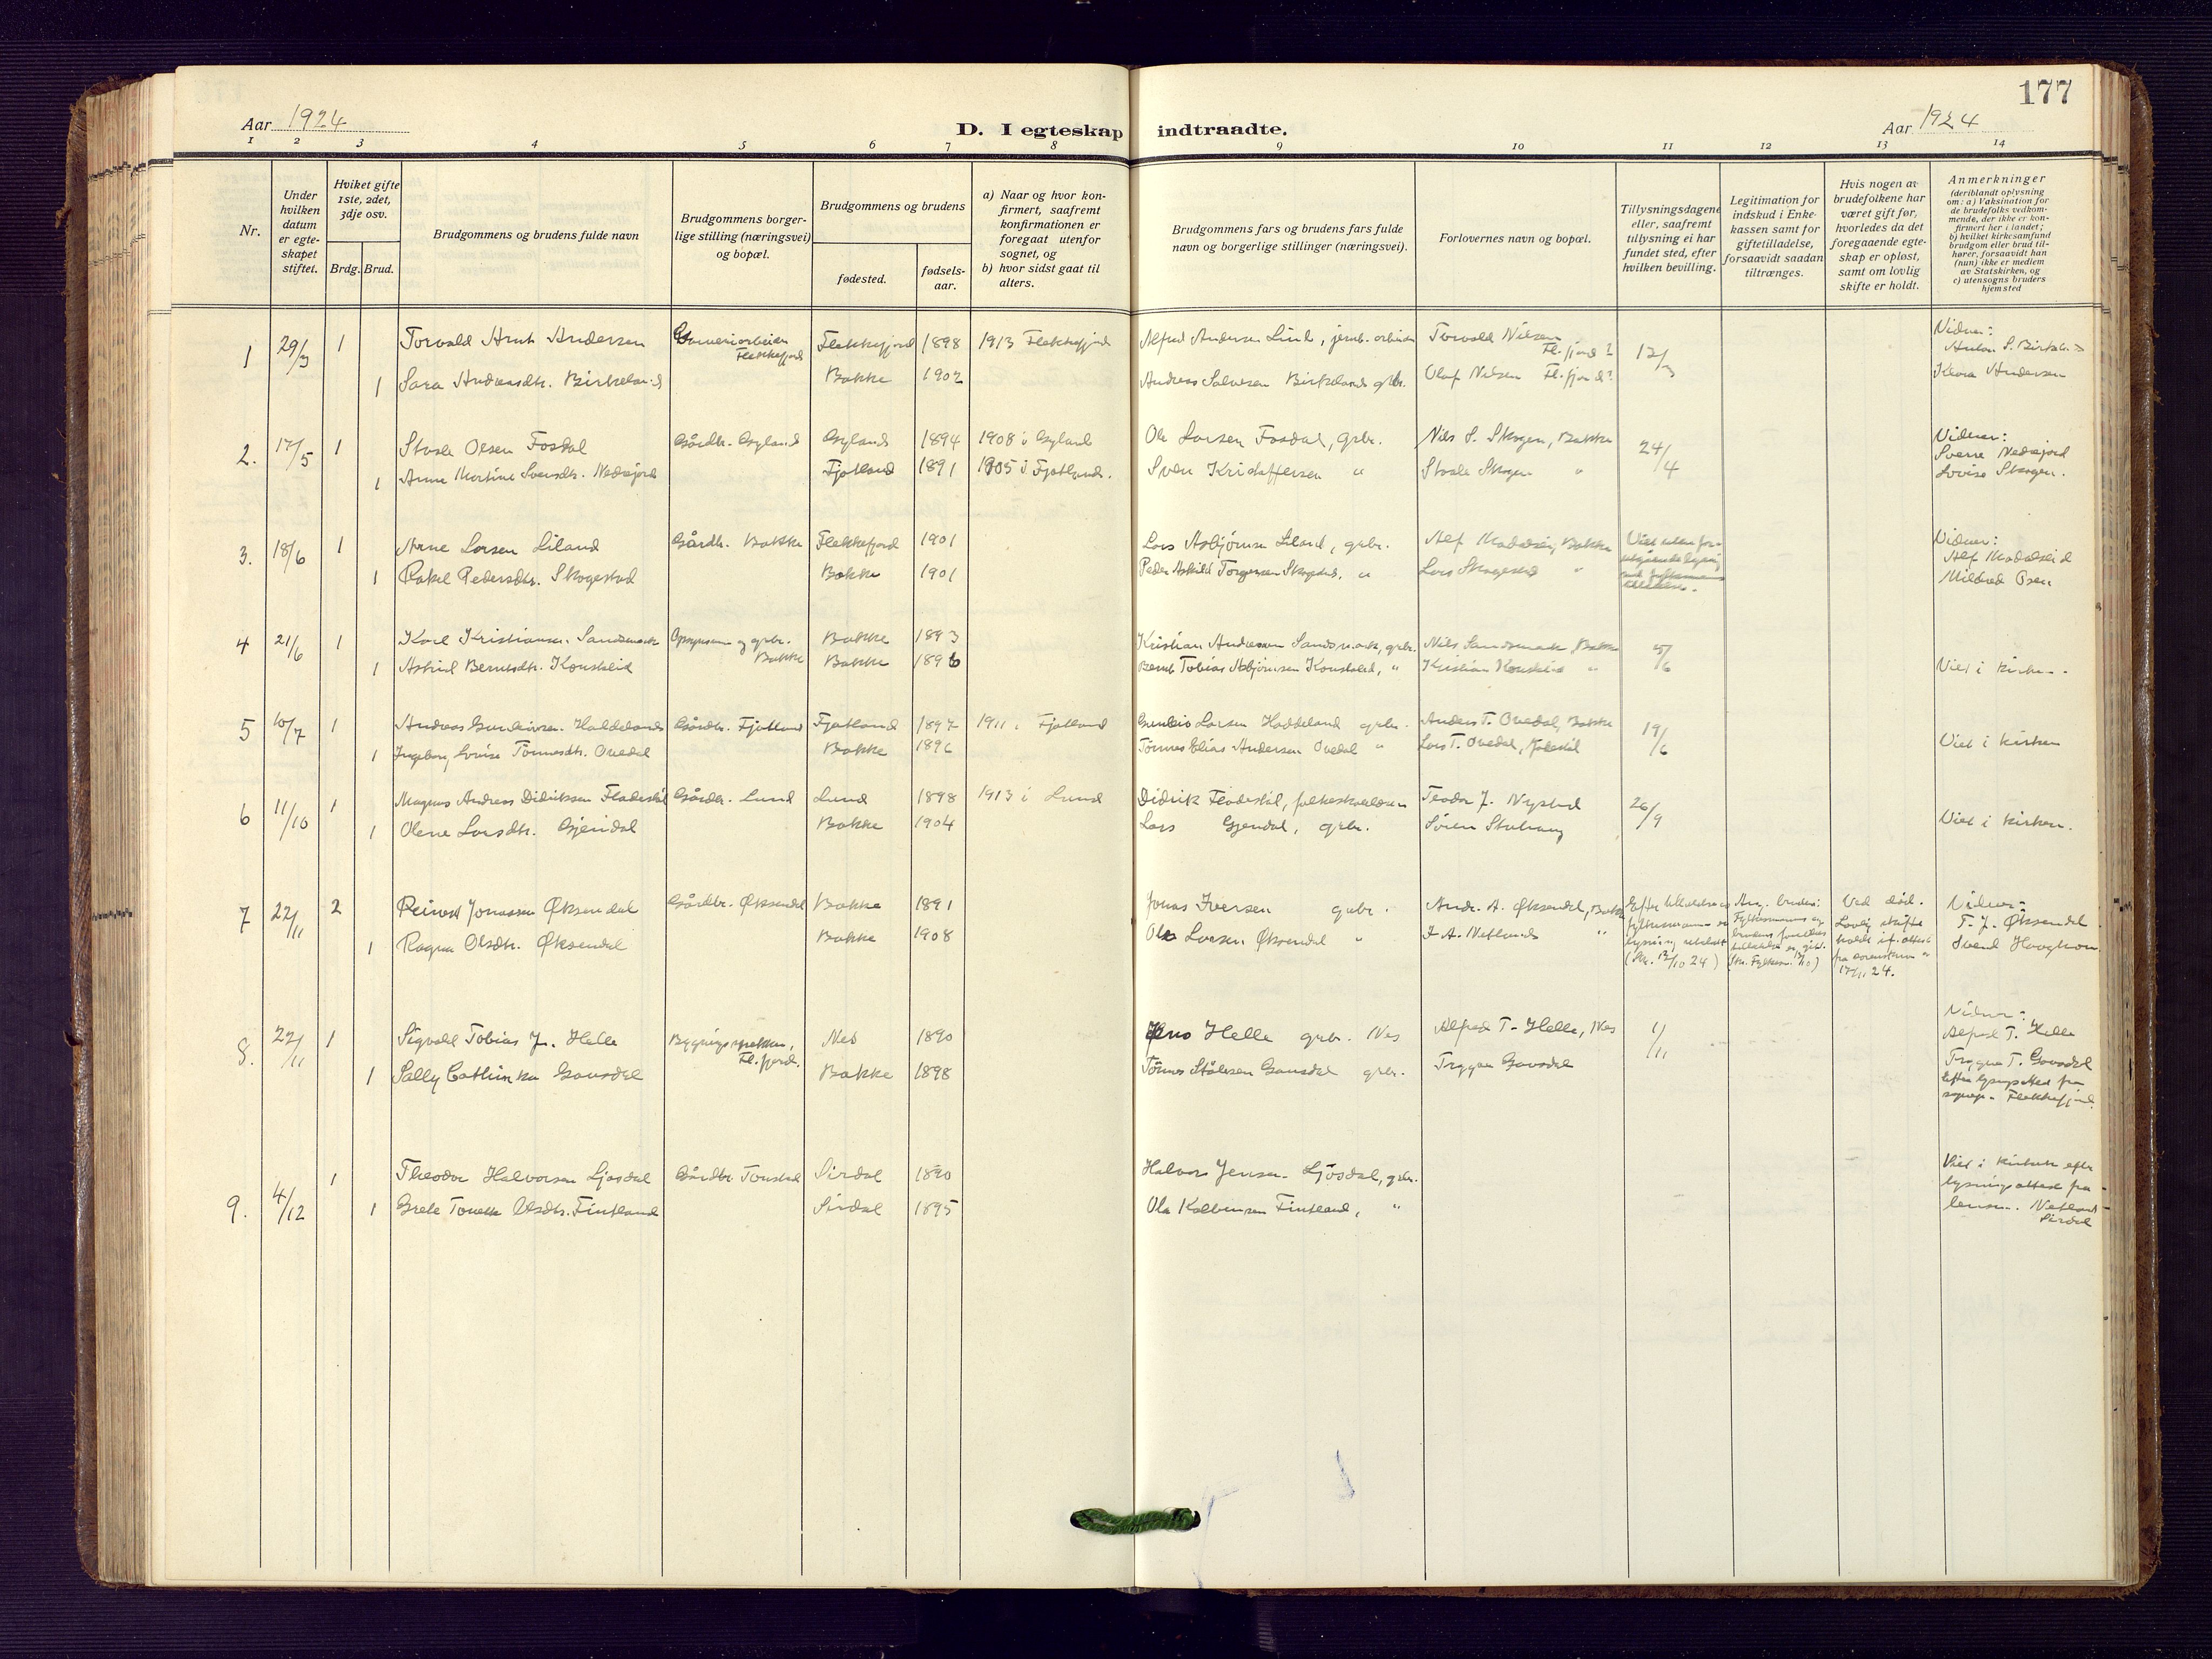 177
Aar 1924
D. I egteskap indtraadte.
Aar 1924
1 2 3 4 5 6 7 8 9 10 11 12 13 14
Nr.
Under hvilken datum er egte-skapet stiftet.
Hviket gifte 1ste, 2det, 3dje osv.
Brdg. Brud.
Brudgommens og brudens fulde navn
Brudgommens borger-lige stilling (næringsvei) og bopæl.
Brudgommens og brudens
fødested.
fødsels-aar.
a) Naar og hvor kon-firmert, saafremt konfirmationen er foregaat utenfor sognet, og
b) hvor sidst gaat til alters.
Brudgommens fars og brudens fars fulde navn og borgerlige stillinger (næringsvei).
Forlovernes navn og bopæl.
Tillysningsdagene eller, saafremt tillysning ei har fundet sted, efter hvilken bevilling.
Legitimation for indskud i Enke-kassen samt for giftetilladelse, forsaavidt saadan tiltrænges.
Hvis nogen av brudefolkene har været gift før, hvorledes da det foregaaende egte-skap er opløst, samt om lovlig skifte er holdt.
Anmerkninger
(deriblandt oplysning om: a) Vaksination for de brudefolks vedkom-mende, der ikke er kon-firmert her i landet; b) hvilket kirkesamfund brudgom eller brud til-hører, forsaavidt han (hun) ikke er medlem av Statskirken, og c) utensogns bruders hjemsted
1 29/3 1 Torvald Arnt Andersen Flekkefjord Flekkefjord 1898 1913 Flekkefjord Alfred Andersen Lind, jernb. arbeider Torvald Nilsen Fl.fjord? 12/3 Vidner:
1 Sara Andreasdtr. Birkeland Bakke 1902 Andreas Salvesen Birkeland grbr. Olaf Nilsen Fl.fjord? Klara Andersen
2. 17/5 1 Ståle Olsen Fosdal Gårdbr. Gyland Gyland 1894 1908 i Gyland Ole Larsen Fosdal, grbr. Nils S. Skogen, Bakke 24/4 Vidner:
Sverre Nedrejord
1 Anne Martine Svensdtr. Nedrejord Fjotland 1891 1905 i Fjotland. Sven Kristoffersen " Ståle Skogen " Lovise Skogen.
3. 18/6 1 Arne Larsen Liland Gårdbr. Bakke Flekkefjord 1901 Lars Asbjørnsen Liland, grbr. Alf Bakke Viet uten for-
Vidner:
1 Rakel Pedersdtr. Skogestad Bakke 1901 Peder Askild Torgersen Skogestad, " Lars Skogestad " Mildred Osen
4 21/6 1 Karl Kristiansen Sandsmark og grbr. Bakke Bakke 1893 Kristian Andreasen Sandsmark, grbr. Nils Sandsmark Bakke 5/6
1 Astrid Berntsdtr. Konsleid Bakke 1896 Bernt Tobias Asbjørnsen Konsleid, " Kristian Konsleid " Viet i kirken.
5 10/7 1 Andreas Gunleivsen Haddeland Gårdbr. Fjotland Fjotland 1897 1911 i Fjotland Gunleiv Larsen Haddeland grbr. Anders T. Ovedal, Bakke 19/6
1 Ingeborg Lovise Tønnesdtr. Ovedal Bakke 1896 Tønnes Elias Andersen Ovedal " Lars T. Ovedal, Viet i kirken
6 11/10 1 Magnus Andreas Didriksen Gårdbr. Lund Lund 1898 1913 i Lund Didrik Teodor J. Nystad 26/9
1 Olene Larsdtr. Gjendal Bakke 1904 Lars Gjendal, grbr. Søren Viet i kirken.
7 22/11 2 Reinert Jonassen Øksendal Gårdbr. Øksendal Bakke 1891 Jonas Iversen grbr. Andr. A. Øksendal, Bakke Ved død. Vidner:
T. J. Øksendal
1 Ragna Olsdtr. Øksendal Bakke 1908 Ole Larsen Øksendal " J. A. Netland " Svend Haughom
17/11 24.
8. 22/11 1 Sigvald Tobias J. Helle Fl.fjord. Nes 1890 Jens Helle grbr. Nes Alfred T. Helle, Nes 1/11 Vidner:
Alfred T. Helle
1 Sally Cathinka Gausdal Bakke 1898 Tønnes Ståle­sen Gausdal grbr. Trygve Gausdal Trygve T. Gausdal
Flekkefjord.
9. 4/12 1 Theodor Halvorsen Ljosdal Gårdbr. Tonstad Sirdal 1890 Halvor Jensen Ljosdal, grbr. Viet i kirken efter
lysningsattest fra
1 Grete Tonette Olsdtr. Fintland Sirdal 1895 Ola Kolbensen Fintland, " Netland
Sirdal